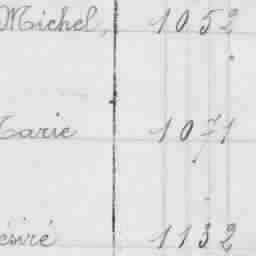 Michel, 1052
Marie 1071
ésiré 1132